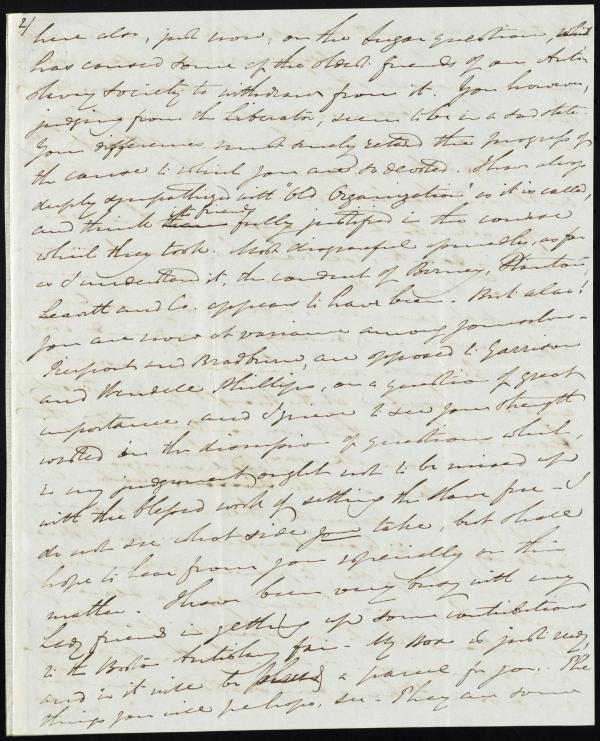 2/
here also, just now, on the Sugar question, which
has caused some of the oldest friends of our Anti
Slavery Society to withdraw from it. You however,
judging from the Liberator, seem to be in a sad state.
Your differences must surely retard the progress of
the cause to which you are so devoted. I have always
deeply sympathized with "Old Organization" as it is called,
and think the friends fully justified in the course
which they took. Most disgraceful assuredly, as far
as I understand it, the conduct of Birney, Stanton,
Leavitt and Co. appears to have been. But alas!
you are now at variance among yourselves -
Pierpont and Bradburn, are opposed to Garrison
and Wendell Phillips, on a question of great
importance, and I grieve to see your strength
wasted in the discussion of questions which,
in my judgement ought not to be mixed up
with the blessed work of setting the slave free - I
do not see what side you take, but shall
hope to hear from you especially on this
matter. I have been very busy with my
Lady friends in getting up some contributions
to the Boston Antislavery fair - My Box is just ready,
and in it will be a parcel for you. The
things you will perhaps, see - They are some